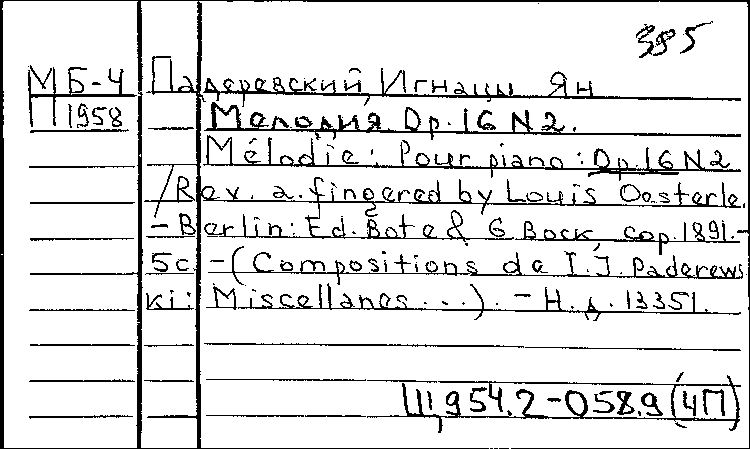 395
МБ-4 Падеревский, Игнацы Ян
П1958 Мелодия Op.16 N2.
Mélodie: Pour piano: Op.16 N2
/Rev. a. fingered by Louis Oesterle.
– Berlin: Ed. Bote & G Bock, cop.1891.–
5с. – (Compositions de I.J. Paderews
ki: Miscellanes...). – Н.д. 13351.
Щ954.2-058.9(4П)